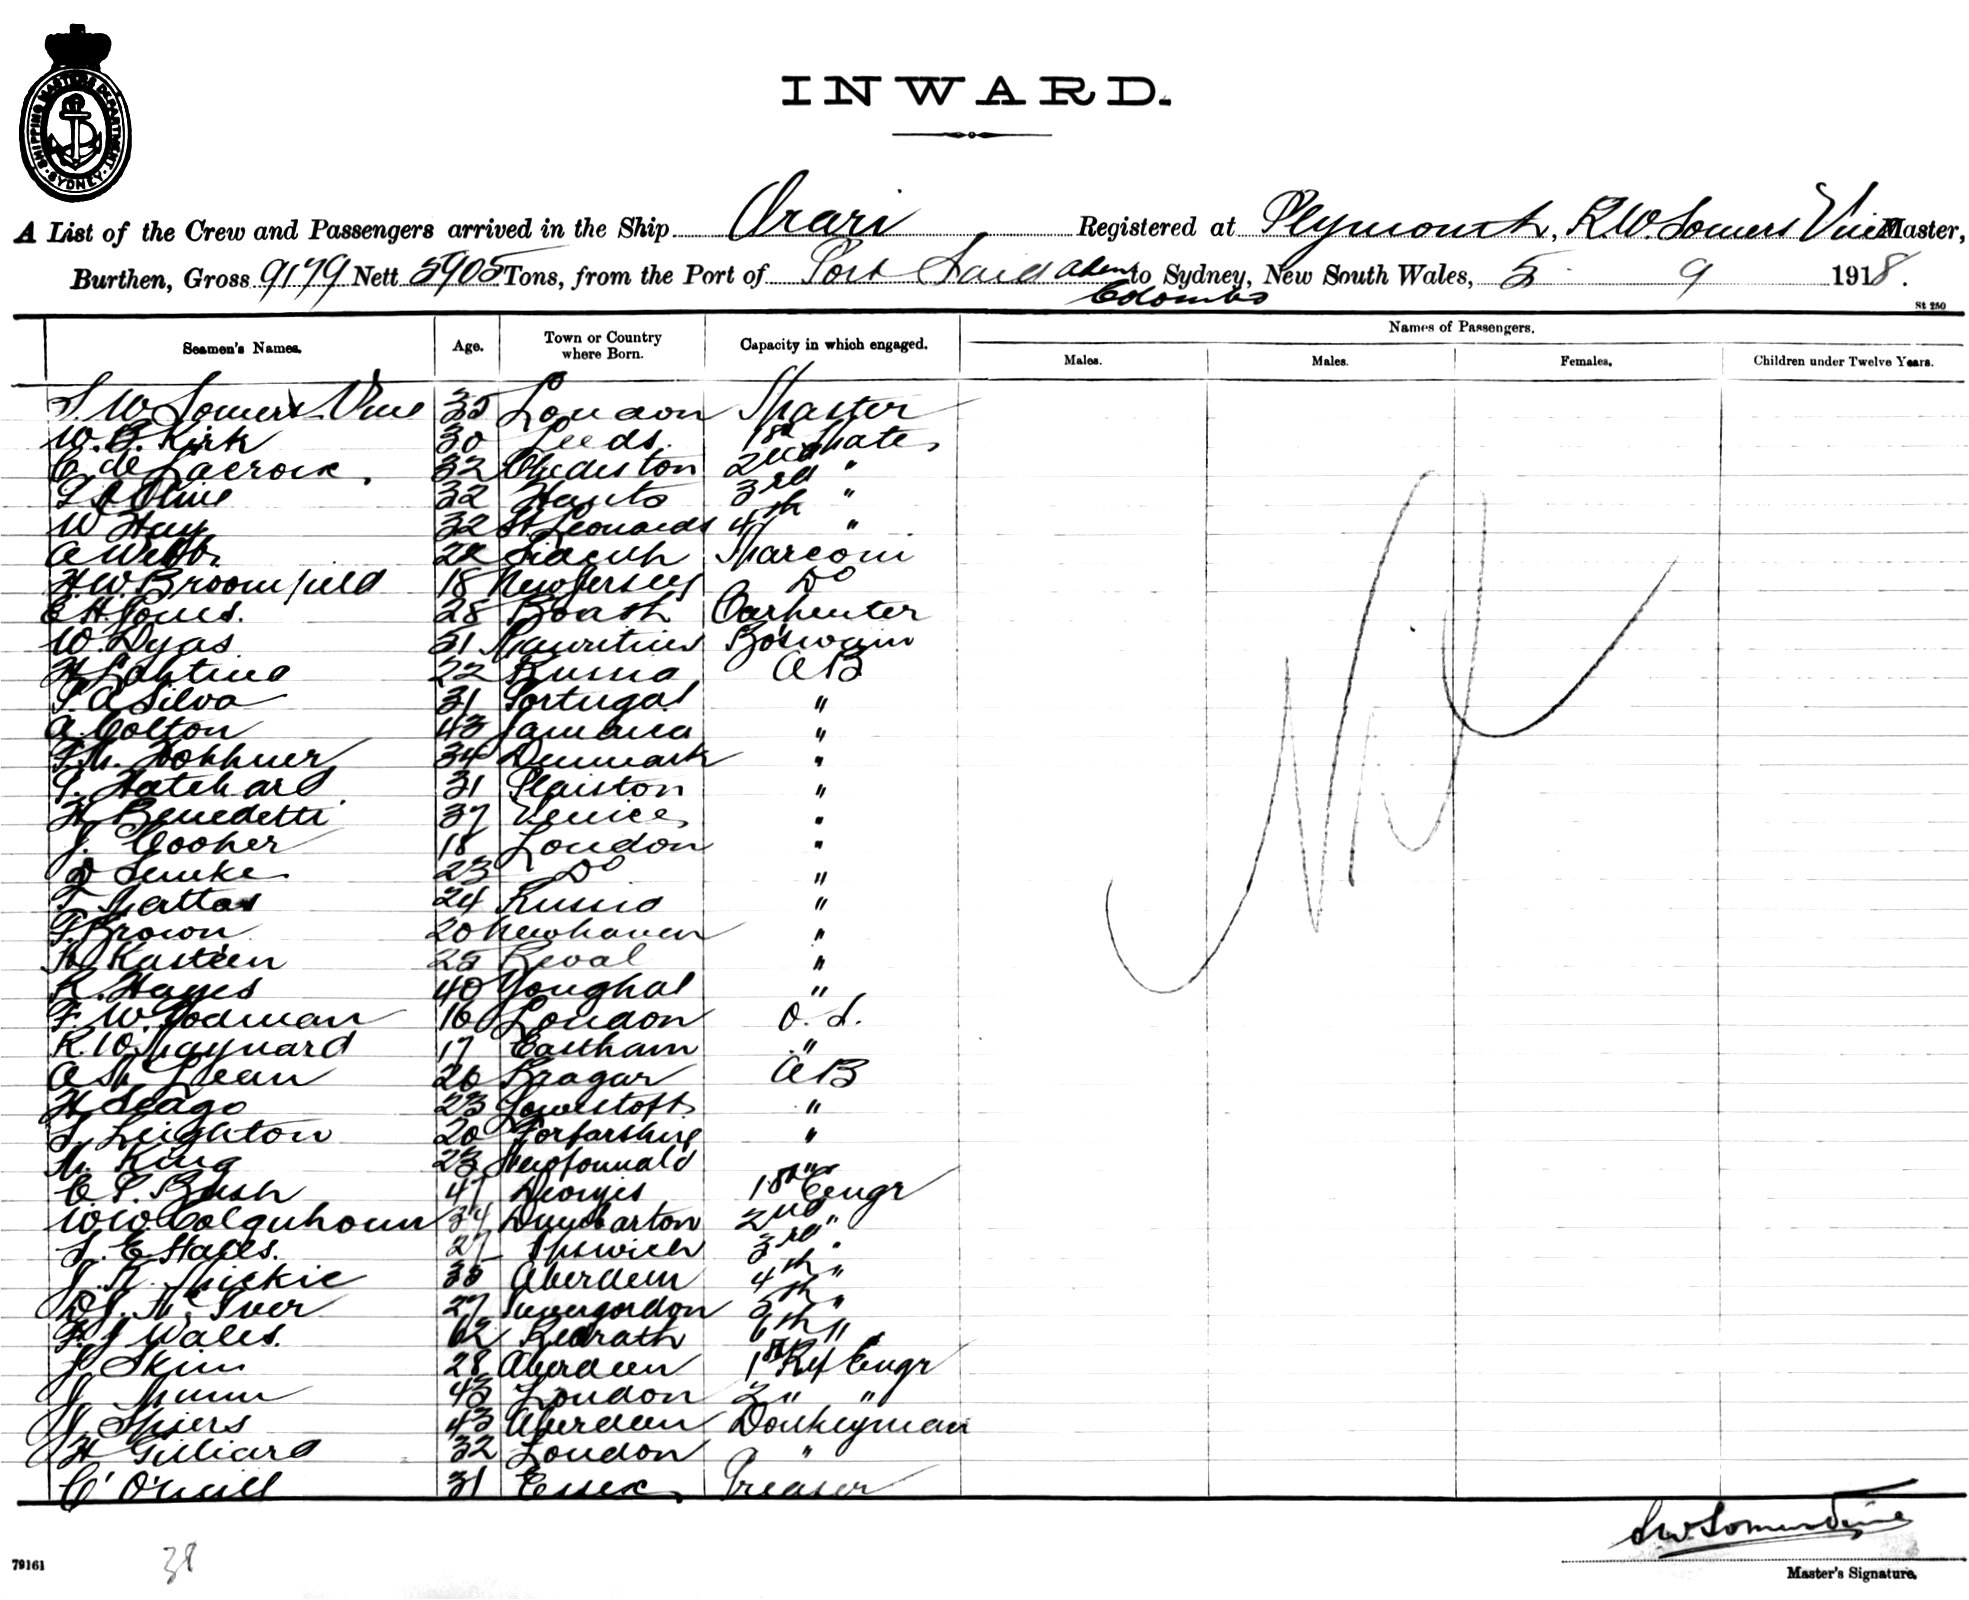 SHIPPING MASTERS DEPARTMENT SYDNEY
INWARD.
A List of the Crew and Passengers arrived in the Ship Orari Registered at Plymouth, R.W. Somers Vine Master,
Burthen, Gross 9179 Nett 5905 Tons, from the Port of Port Said Aden Colombo to Sydney, New South Wales, 5 9 1918.
St 250
Seamen's Names. Age. Town or Country where Born. Capacity in which engaged. Names of Passengers.
Males. Males. Females. Children under Twelve Years.
S. W. Somers Vine 35 London Master
W. G. Kirk 30 Leeds. 1st Mate
C. de Lacroix. 32 2nd "
32 Hants 3rd "
W Hay 32 St Leonards 4th "
A Webb. Marconi
H. W. Broomfield 18 New Jersey Do
E H Jones. 28 Carpenter
W. Dyas 31 Mauritius Bo'swain
22 Russia AB
31 Portugal "
A. Colton 43 Jamaica "
34 Denmark "
31 Plaiston "
H Benedetti 37 Venice "
J. Cooper 18 London "
23 Do "
Mattas 24 Russia "
Brown 20 Newhaven "
Kasteen 25 Reval "
R. Hayes 40 Youghal "
F. W. Godman 16 London O. S.
R. W. Maynard 17 Eastham "
A McLean 26 Bragar AB
H Seago 23 Lowestoft "
S. Leighton 20 Forfarshire "
M. King 23 Newfounald "
C P. Bush 47 1st Engr
W W Colquhoun 34 Dumbarton 2nd "
S. E Staces. 27 Ipswich 3rd "
J. R. Mickie 35 Aberdeen 4th "
D J. McIver 27 Invergordon 5th "
F J Wales. 62 Redrath 6th "
J Skim 28 Aberdeen 1st Ref Engr
J Munn 43 London 2 " "
J Spiers 43 Aberdeen Donkeyman
H Gilliard 32 London "
C' O'neill 31 Essex Greaser
Nil
S.W. Somers Vine
Master's Signature.
79161
38